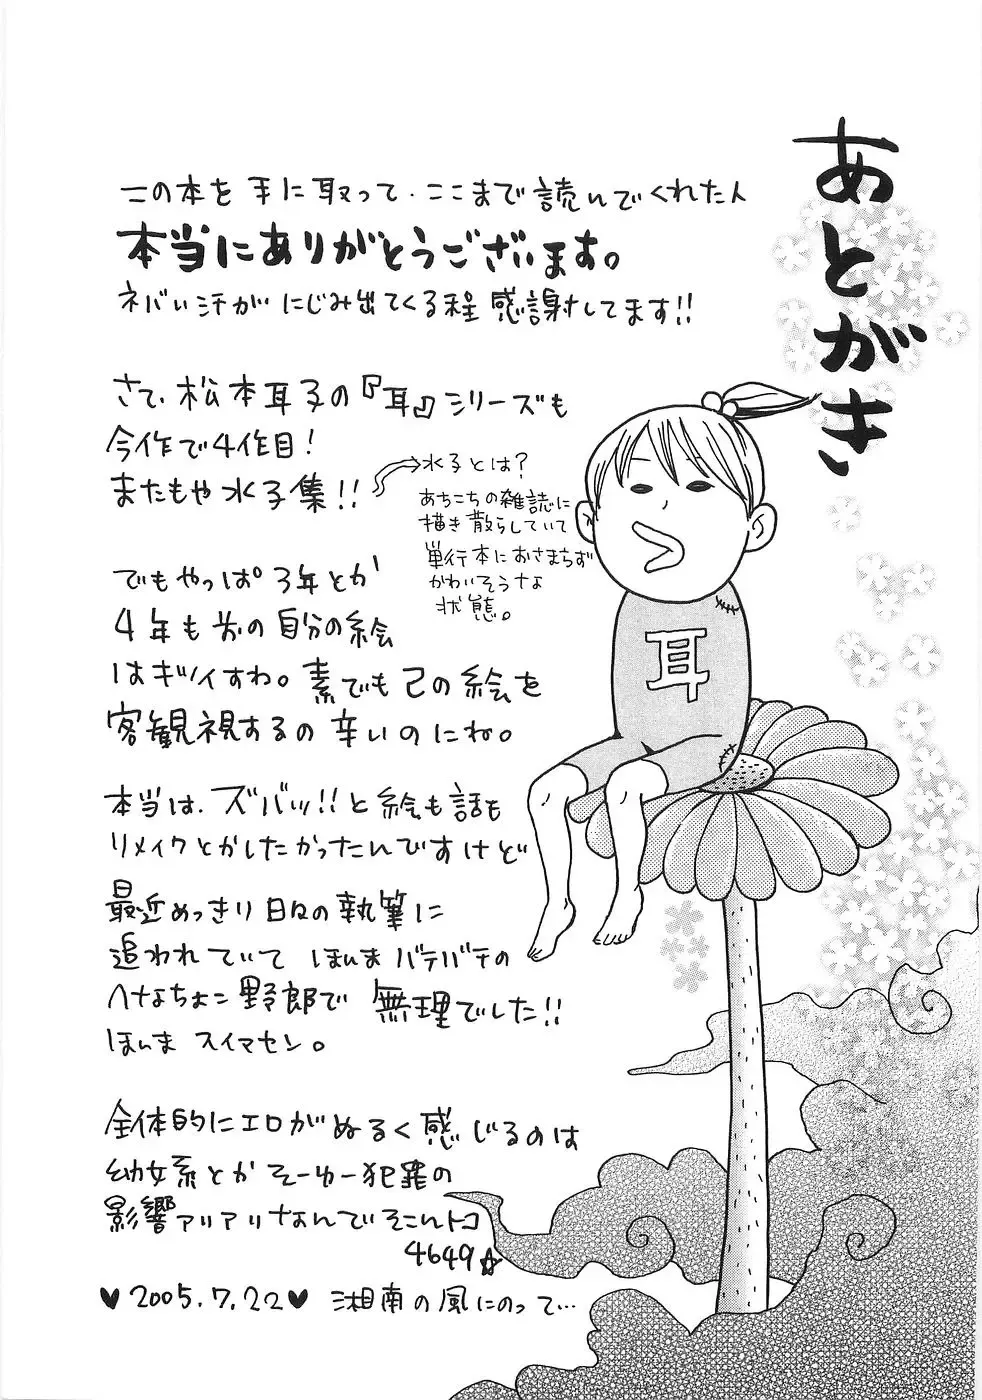 あとがき
この本を手に取って、ここまで読んでくれた人
本当にありがとうございます。
ネバい汗がにじみ出てくる程感謝してます!!
さて、松本耳子の『耳』シリーズも
今作で4作目!
またもや水子集!!
水子とは?
あちこちの雑誌に
描き散らしていて
単行本におさまらず
かわいそうな
状態。
でもやっぱ3年とか
4年も前の自分の絵
はキツイすわ。素でも己の絵を
客観視するの辛いのにね。
本当は、ズバッ!!と絵も話も
リメイクとかしたかったんですけど
最近めっきり日々の執筆に
追われていてほんまバテバテの
へなちょこ野郎で無理でした!!
ほんまスイマセン。
全体的にエロがぬるく感じるのは
幼女系とかそーゆー犯罪の
影響アリアリなんでそこんトコ
4649☆
♥2005.7.22♥ 湘南の風にのって…
耳